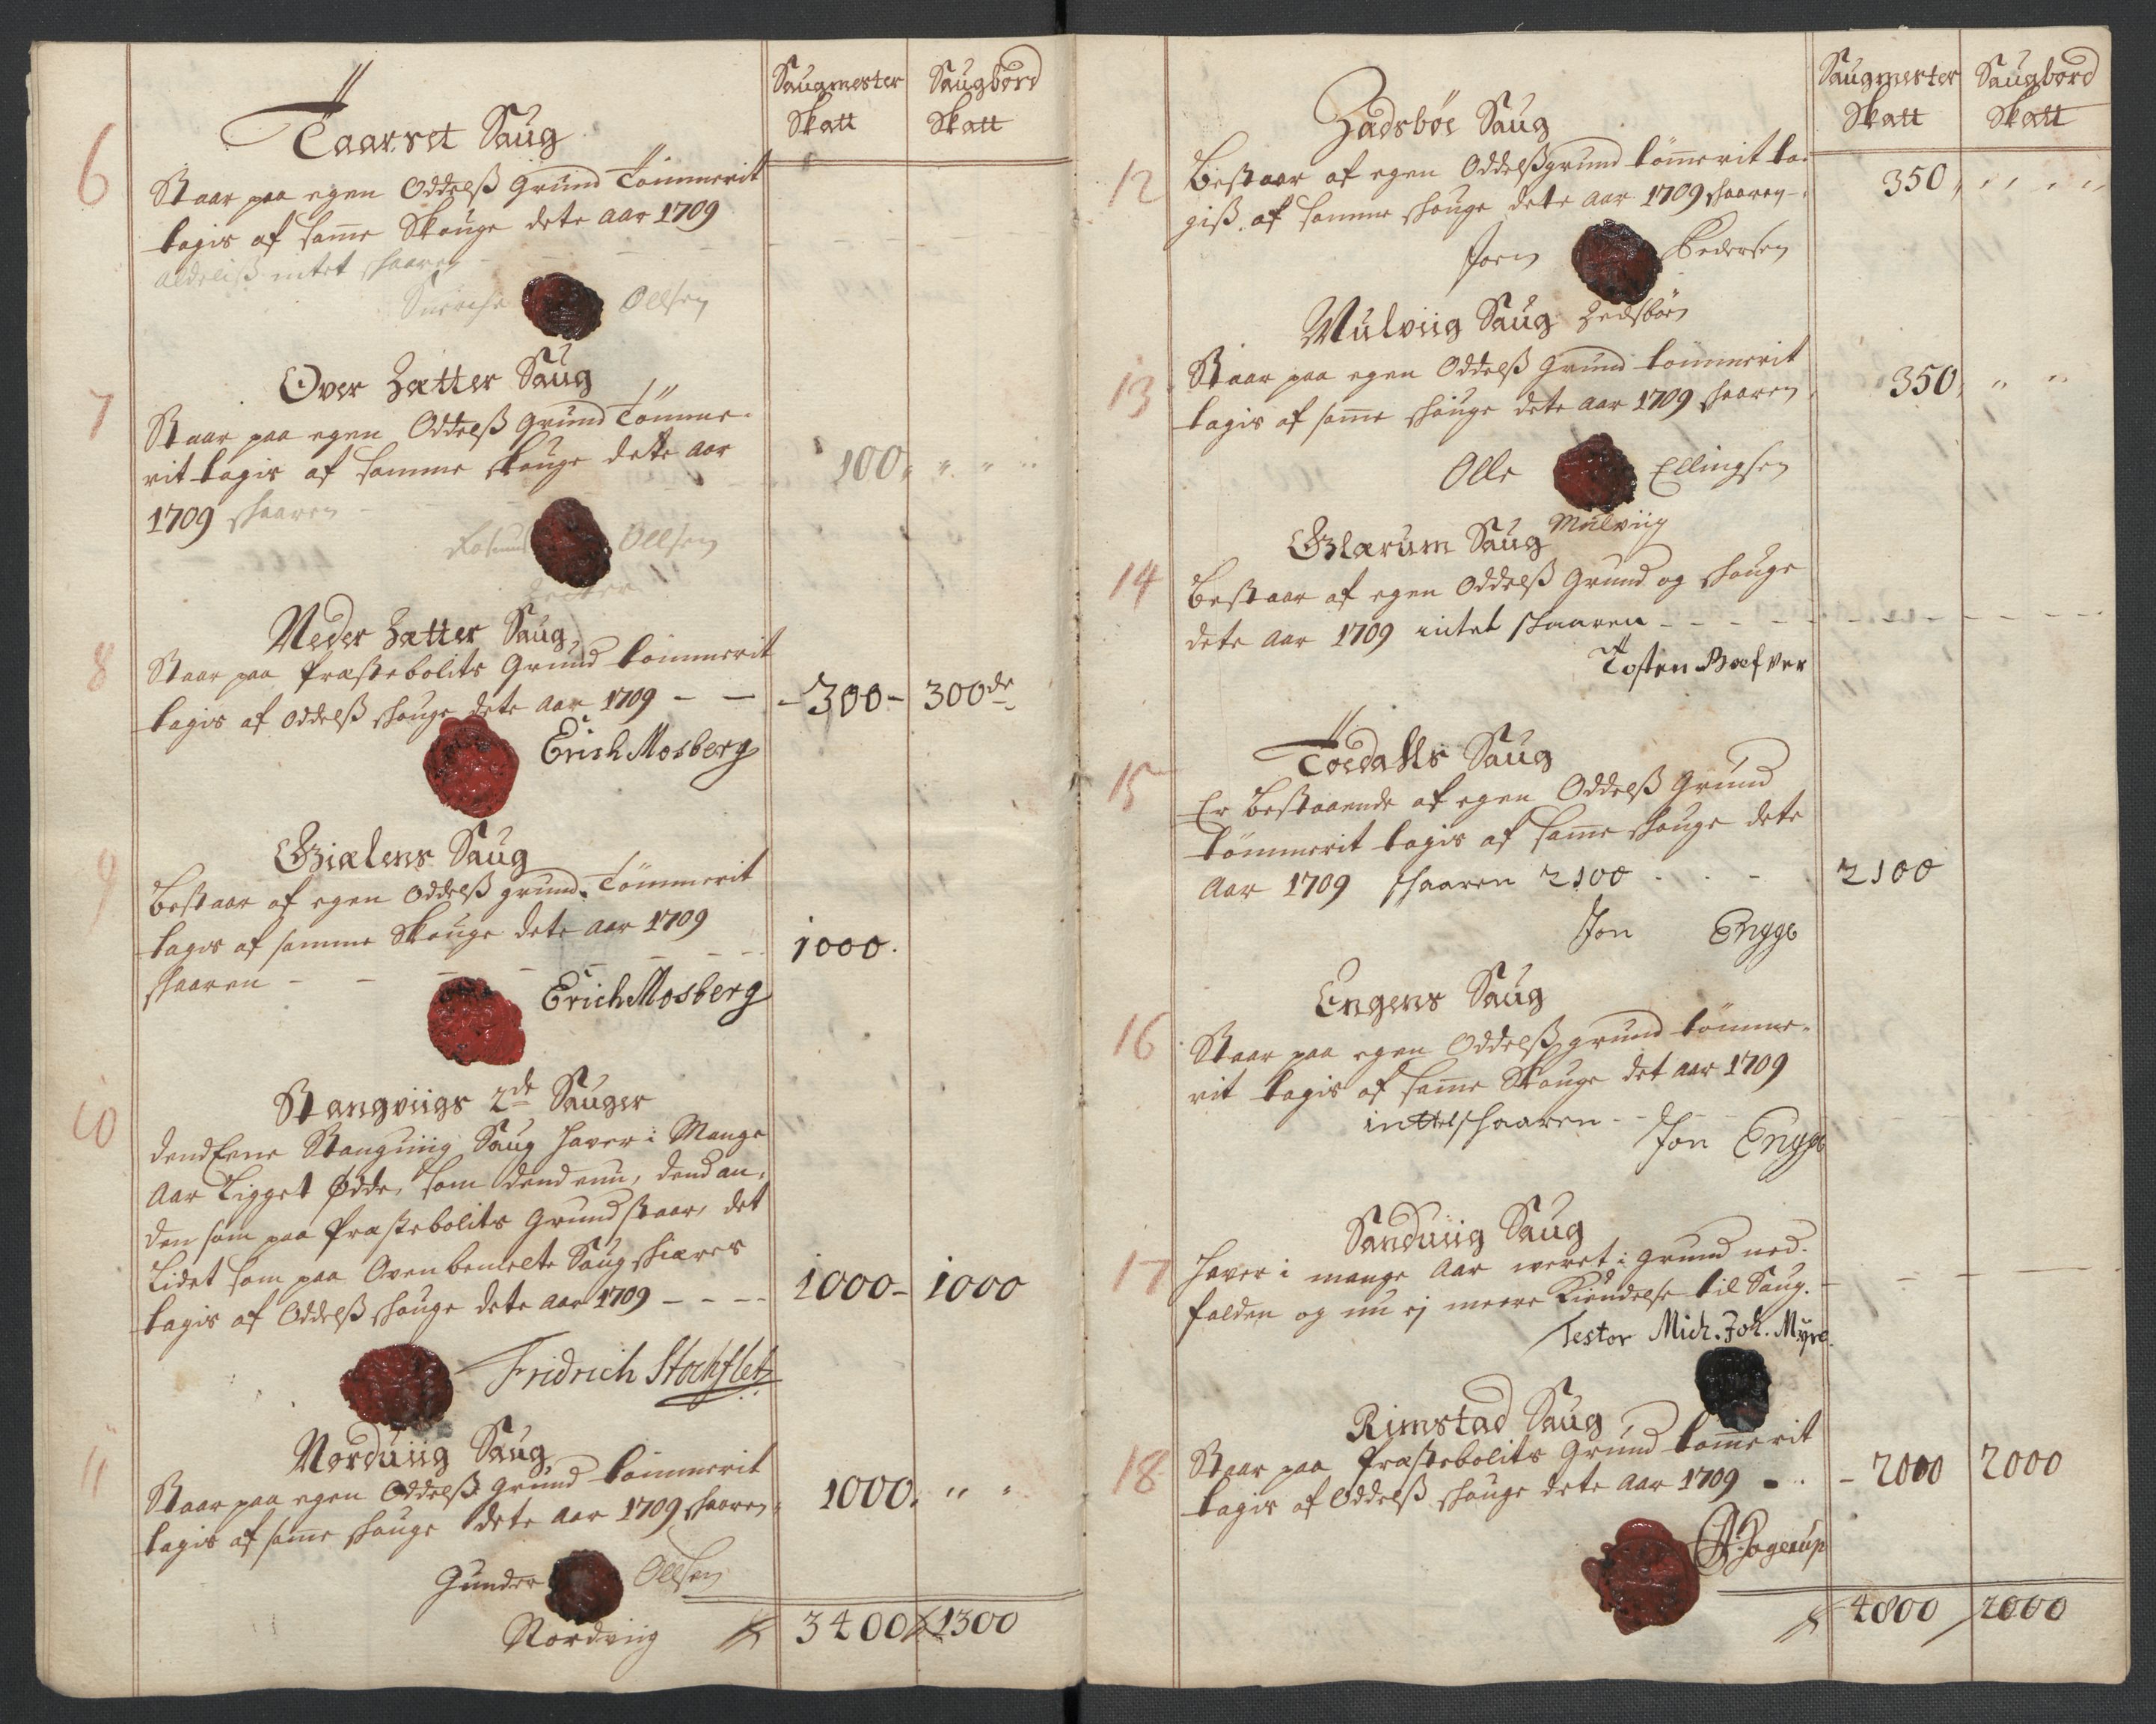 Saugmester Saugbord
Skatt Skatt
6
Taarset Saug
Staar paa egen Oddelß Grund Tömmerit
tagis af same Skouge dete aar 1709
aldeliß intet skaaren
Ollsen
7
Over Zætter Saug
Staar paa egen Oddelß Grund Tömme-
rit tagis af samme skouge dete aar
1709 skaaren - 100
Ollsen
Zetter
8
Neder Zætter Saug
Staar paa Præstebolits Grund tömmerit
tagis af Oddelß skouge dete aar 1709 - - - 300 - 300 de
Erich Mosberg
9
Giælens Saug
Bestaar af egen Oddelß grund. Tömmerit
tagis af samme Skouge dete aar 1709
skaaren - - - 1000.
Erich Mosberg
10
Stangviigs 2de Sauger
dend Eene Stangviig Saug haver i Mange
Aar Ligget Ødde, som dend nu, dend an-
den som paa Præstebolits Grund staar, det
Lidet som paa Ovenbemelte Saug skiæres
tagis af Oddelß skouge dete aar 1709 - - - - 1000 - 1000
Fridrich Stockflet
11
Norduiig Saug
Staar paa egen Oddelß grund tömmerit
tagis af same skouge dete aar 1709 skaaren 1000.
Gunder Ollsen
Nordviig
3400 1300
Saugmester Saugbord
Skatt Skatt
12
Zadsböe Saug
Bestaar af egen Oddelßgrund tömmerit ta-
giß af samme skouge dete aar 1709 skaaren - 350
Joen Pedersen
Zedsböen
13
Mulviig Saug
Staar paa egen Oddelß Grund tömmerit
tagis af same skouge dete aar 1709 skaaren 350
Olle Ellingsen
Mulviig
14
Glærum Saug
Bestaar af egen Oddelß Grund og skouge
dete aar 1709 intet skaaren - - - -
Tosten Bæfver
15
Toedalls Saug
Er Bestaaende af egen Oddelß Grund
tömmerit tagis af same skouge dete
Aar 1709 skaaren 2100 - 2100
Jon Engge
16
Engens Saug
Staar paa egen Oddelß grund tömme-
rit tagis af same Skouge det aar 1709
inttet skaaren - -
Jon Engge
17
Sanduiig Saug
haver i mange Aar weret i grund ned-
falden og nu ej meere Kiendelse til Saug. -
Testor Mich. Joh. Myre.
18
Rimstad Saug
Staar paa Præstebolits Grund tömerit
tagis af Oddelß skouge dete aar 1709 - 2000 2000
4800 2000